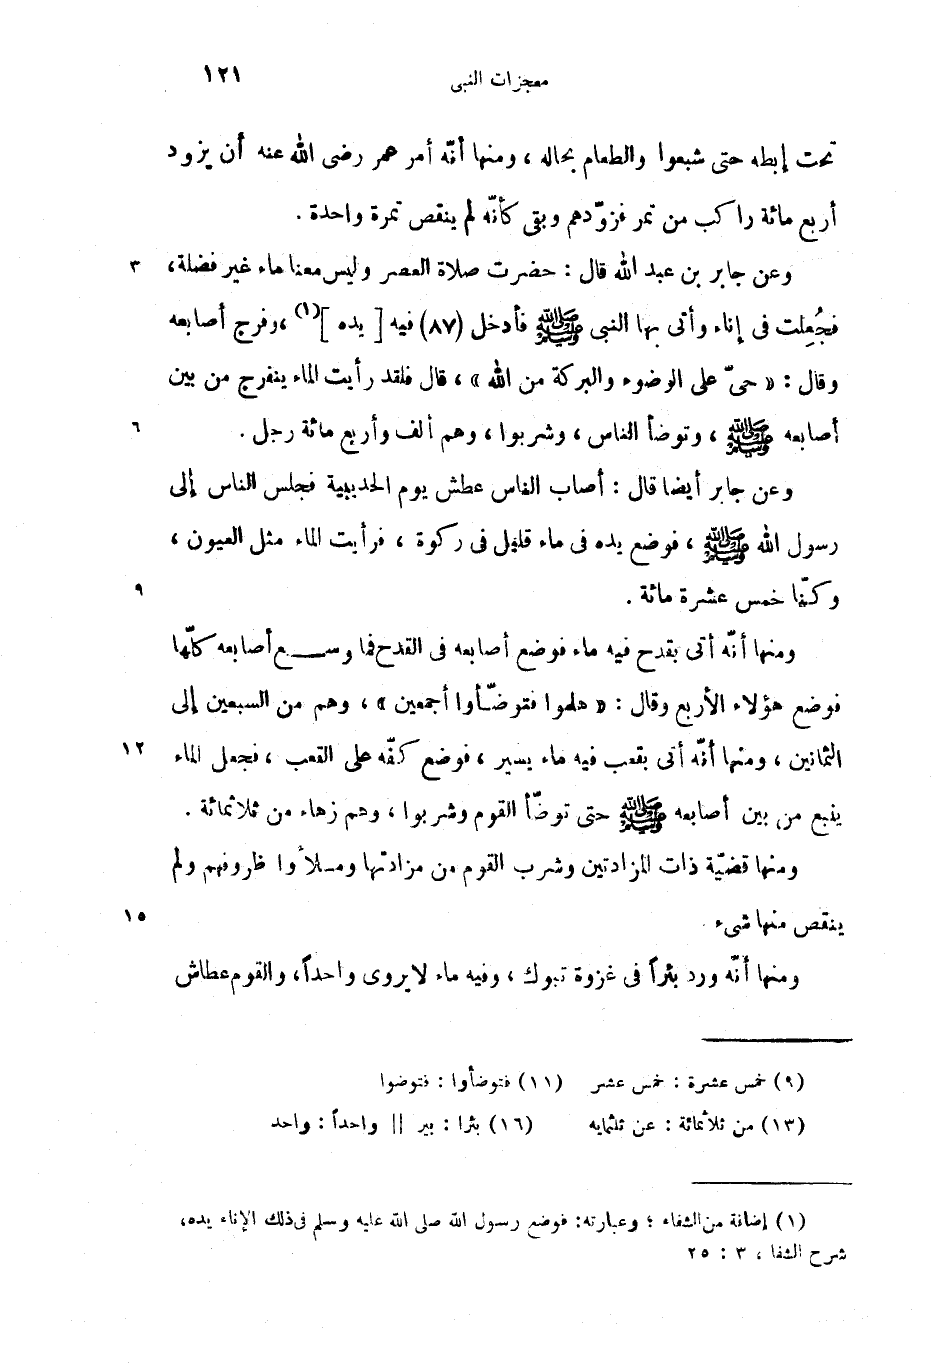 معجزات النبى ١٢١
تحت إبطه حتى شبعوا والطعام بحاله ، ومنها أنّه أمر عمر رضى الله عنه أن يزود
أربع مائة راكب من تمر فزوّدهم وبقى كأنّه لم ينقص تمرة واحدة .
وعن جابر بن عبد الله قال : حضرت صلاة العصر وليس معنا ماء غير فضلة، ٣
فجُعِلت فى إناء وأتى بها النبى ﷺ فأدخل (٨٧) فيه [ يده ](١) ،وفرج أصابعه
وقال : « حىّ على الوضوء والبركة من الله » ، قال فلقد رأيت الماء ينفرج من بين
أصابعه ﷺ ، وتوضأ الناس ، وشربوا ، وهم ألف وأربع مائة رجل . ٦
وعن جابر أيضا قال : أصاب الناس عطش يوم الحديبية فجلس الناس إلى
رسول الله ﷺ ، فوضع يده فى ماء قليل فى ركوة ، فرأيت الماء مثل العيون ،
وكنّا خمس عشرة مائة . ٩
ومنها أنّه أتى بقدح فيه ماء فوضع أصابعه فى القدح فما وسـع أصابعه كلّها
فوضع هؤلاء الأربع وقال : « هلموا فتوضّأوا أجمعين » ، وهم من السبعين إلى
الثمانين ، ومنها أنّه أتى بقعب فيه ماء يسير ، فوضع كفّه على القعب ، فجعل الماء ١٢
ينبع من بين أصابعه ﷺ حتى توضّأ القوم وشربوا ، وهم زهاء من ثلاثمائة .
ومنها قضيّة ذات المزادتين وشرب القوم من مزادتها ومـلأوا ظروفهم ولم
ينقص منها شىء . ١٥
ومنها أنّه ورد بئراً فى غزوة تبوك ، وفيه ماء لا يروى واحداً، والقوم عطاش
(٩) خمس عشرة : خمس عشر (١١) فتوضأوا : فتوضوا
(١٣) من ثلاثمائة : عن ثلثمايه (١٦) بئرا : بير || واحداً : واحد
(١) إضافة من الشفاء ؛ وعبارته: فوضع رسول الله صلى الله عليه وسلم فى ذلك الإناء يده،
شرح الشفا ، ٣ : ٢٥